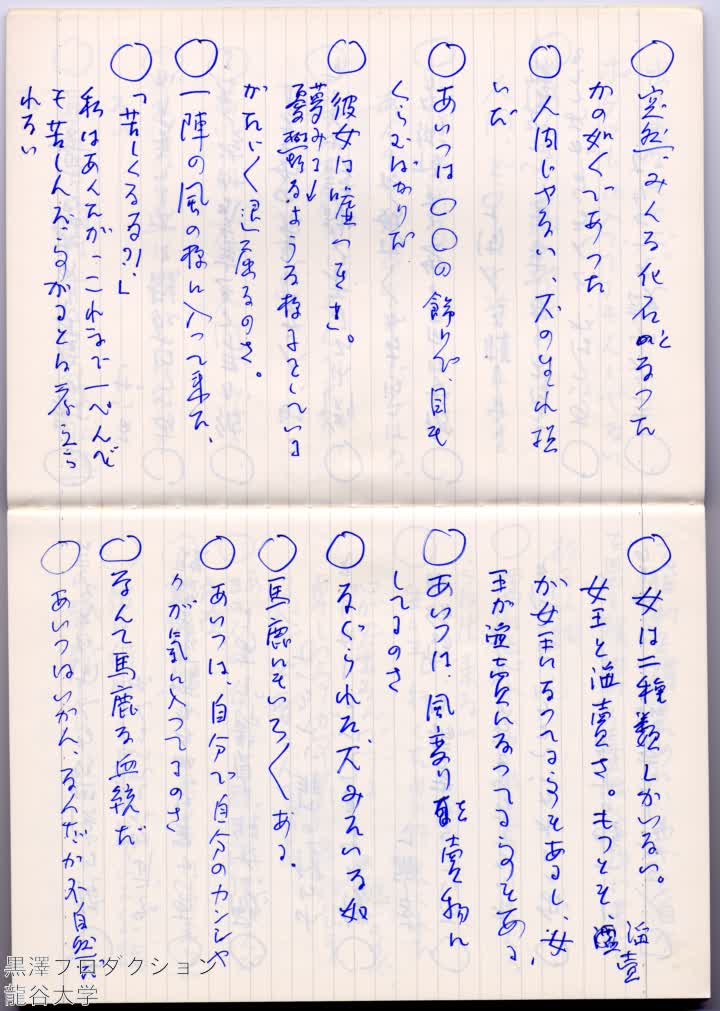 ○ 突然、みんな化石となつた
かの如くであつた
○ 人間じやない、犬の生れ損
いだ
○ あいつは〇〇の飾りで、目も
くらむばかりだ
○ 彼女は嘘つきよ。
夢みているような様子をしている
がたいくつ退屈なのさ。
○ 一陣の風の様に入つて来た、
○「苦しくなる?!」
私はあんたが、これまで一ぺんで
も苦しんだことがあるとは考えら
れない
○ 女は二種類しかいない。
女王と淫売さ。もつとも、淫売
が女王になつてる事もあるし、女
王が淫売になつてる事もある、
○ あいつは、風変りを売物に
してるのさ
○ なぐられた犬みたいな奴
○ 馬鹿にもいろ〱ある、
○ あいつは、自分で自分のカンシャ
クが気に入つてるのさ
○ なんて馬鹿な血統だ
○ あいつはいかん、なんだか不自然だ
黒澤プロダクション
龍谷大学